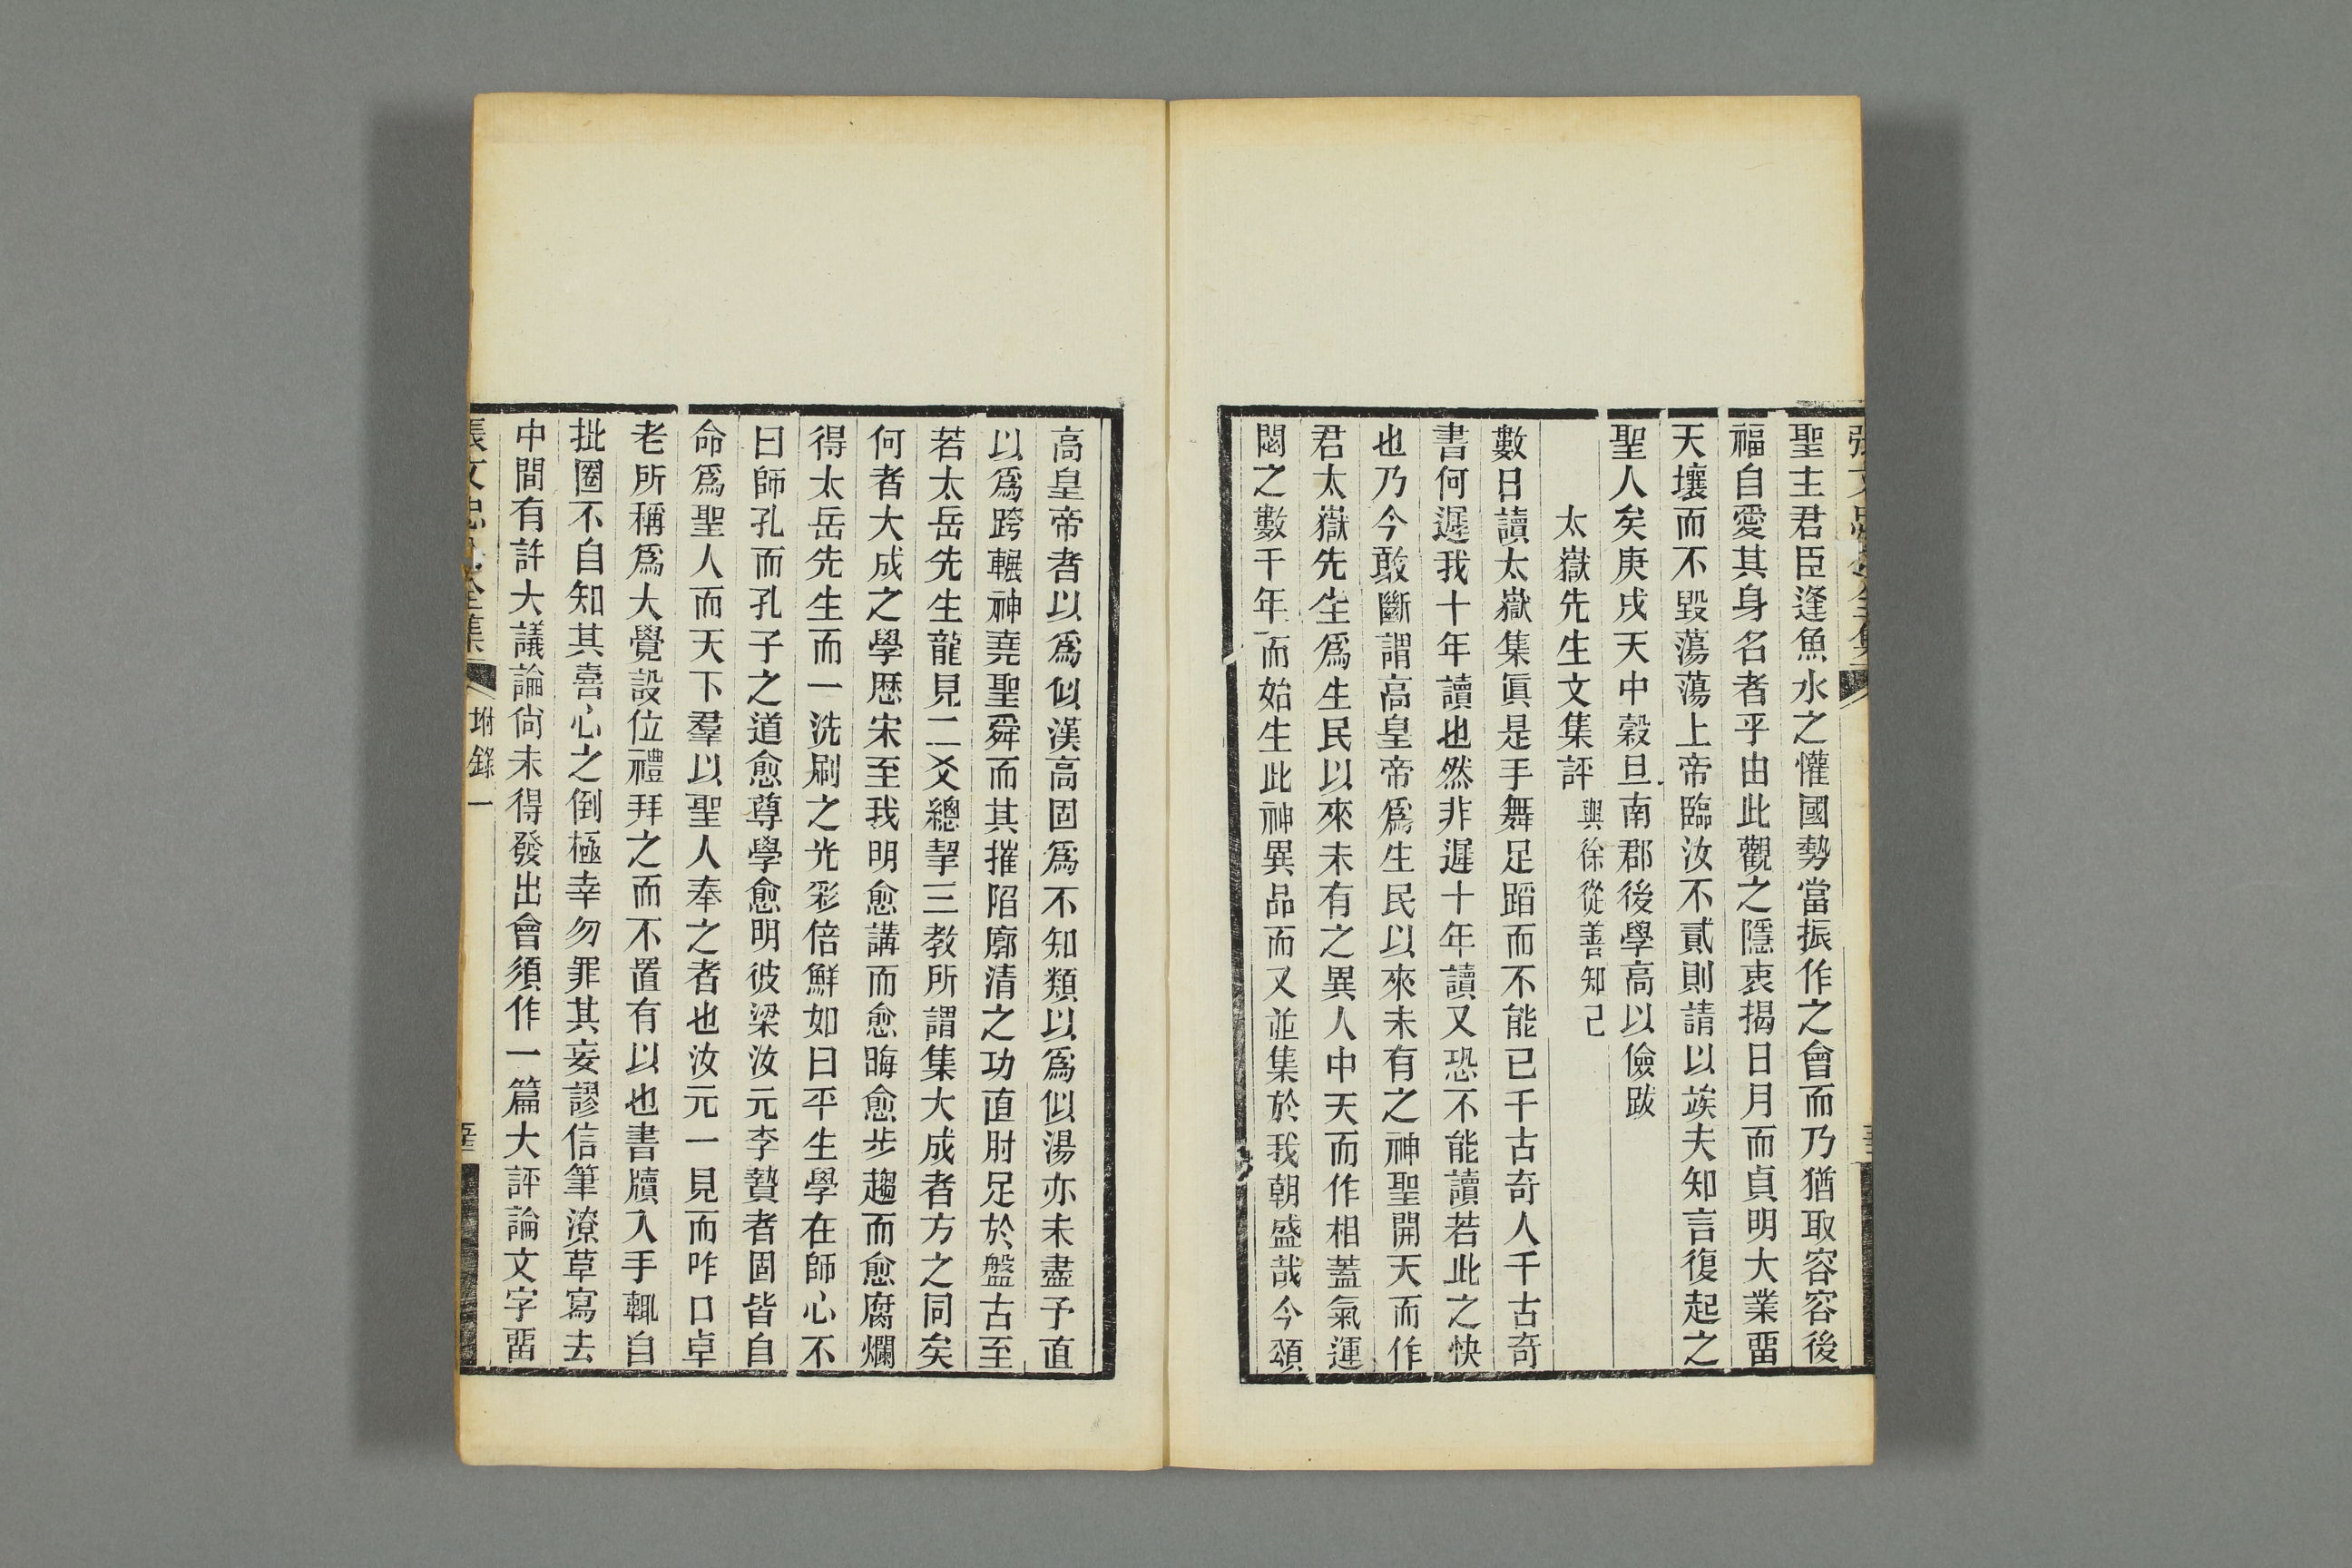 聖主君臣逢魚水之懽國勢當振作之會而乃猶取容容後
福自愛其身名者乎由此觀之隱衷揭日月而貞明大業畱
天壤而不毀蕩蕩上帝臨汝不貳則請以竢夫知言復起之
聖人矣庚戌天中穀旦南郡後學高以儉跋
太嶽先生文集評 與徐從善知己
數日讀太嶽集眞是手舞足蹈而不能已千古奇人千古奇
書何遲我十年讀也然非遲十年讀又恐不能讀若此之快
也乃今敢斷謂高皇帝爲生民以來未有之神聖開天而作
君太嶽先生爲生民以來未有之異人中天而作相蓋氣運
閟之數千年而始生此神異品而又並集於我朝盛哉今頌
高皇帝者以爲似漢高固爲不知類以爲似湯亦未盡予直
以爲跨輾神堯聖舜而其摧陷廓清之功直肘足於盤古至
若太岳先生龍見二爻總挈三教所謂集大成者方之同矣
何者大成之學歷宋至我明愈講而愈晦愈步趨而愈腐爛
得太岳先生而一洗刷之光彩倍鮮如曰平生學在師心不
曰師孔而孔子之道愈尊學愈明彼梁汝元李贄者固皆自
命爲聖人而天下羣以聖人奉之者也汝元一見而咋口卓
老所稱爲大覺設位禮拜之而不置有以也書牘入手輒自
批圈不自知其喜心之倒極幸勿罪其妄謬信筆潦草寫去
中間有許大議論尙未得發出會須作一篇大評論文字畱
張文忠公全集 坿錄一